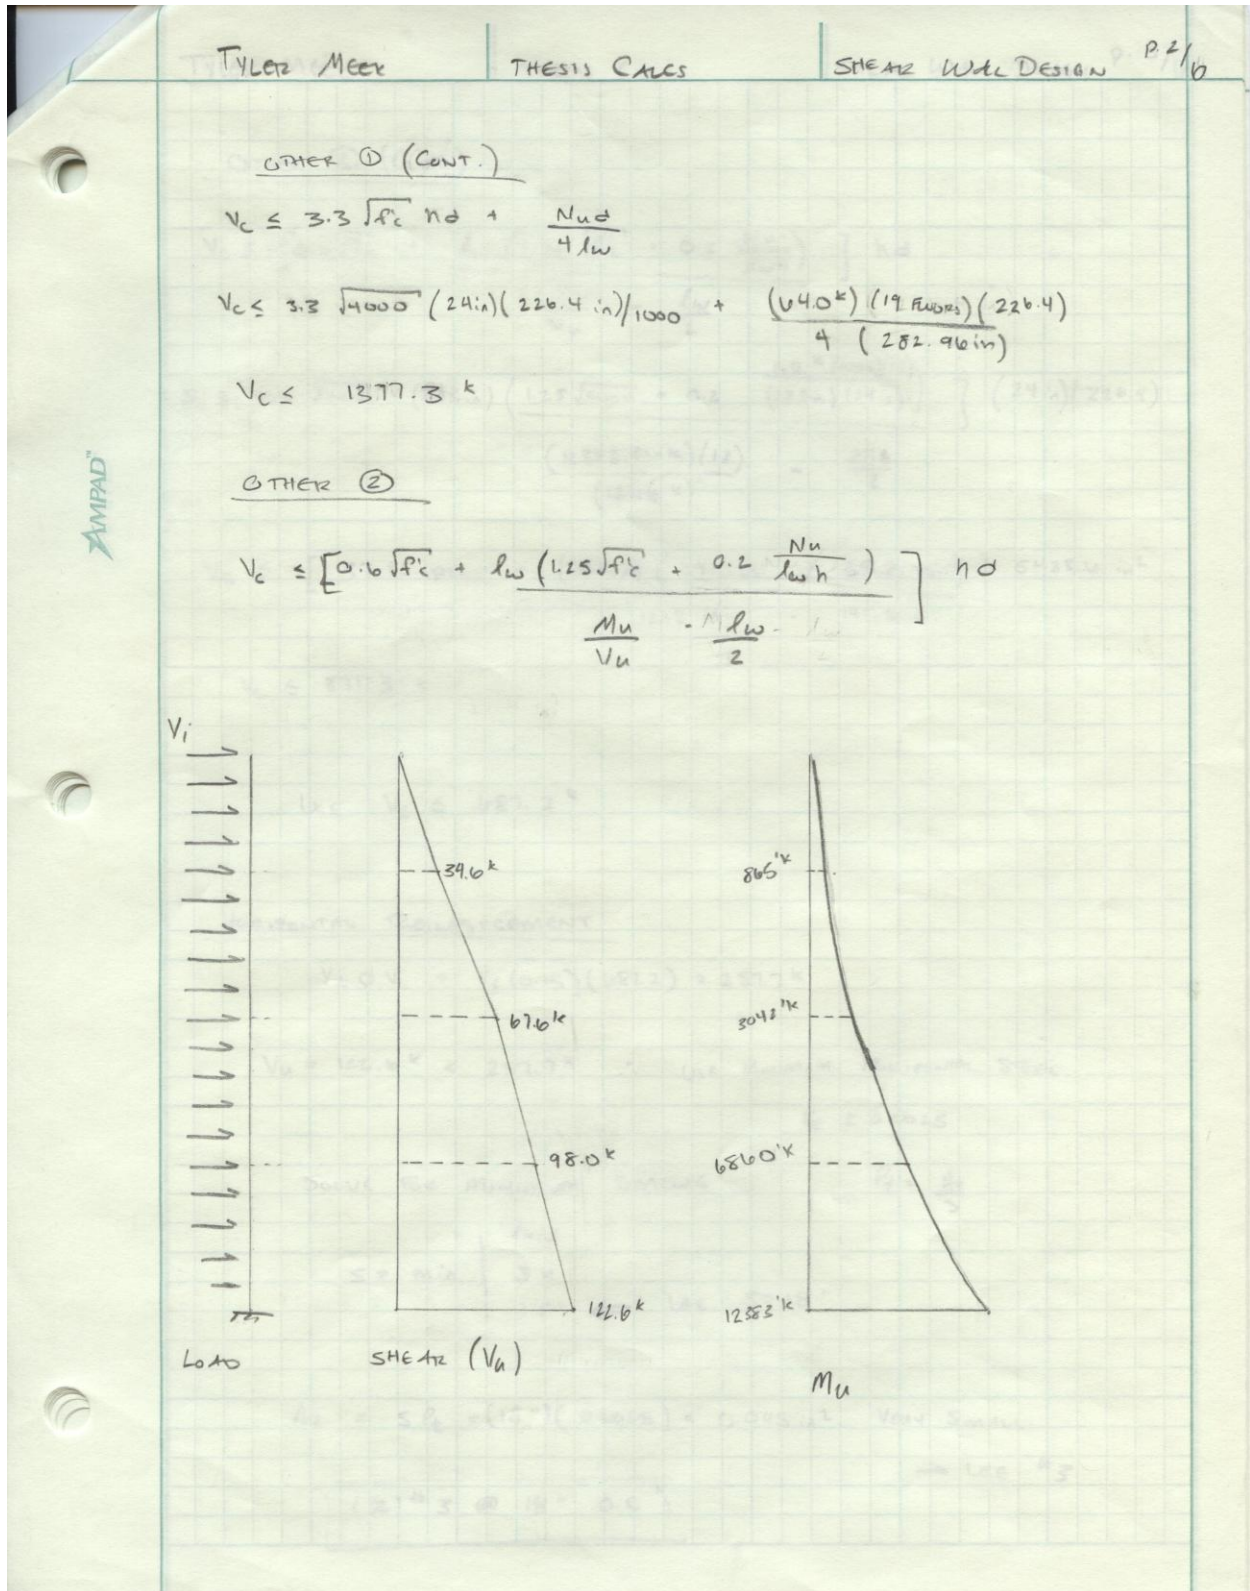 TYLER MEEK THESIS CALCS SHEAR WALL DESIGN P.2/6
OTHER ① (CONT.)
Vc ≤ 3.3 √f'c hd + Nud / 4lw
Vc ≤ 3.3 √4000 (24in)(226.4 in)/1000 + (64.0ᵏ)(19 FLOORS)(226.4) / 4 (282.96in)
Vc ≤ 1377.3 ᵏ
AMPAD™
OTHER ②
Vc ≤ [0.6√f'c + lw (1.25√f'c + 0.2 Nu / lwh) / Mu / Vu - lw / 2] hd
Vi
39.6ᵏ
865'ᵏ
67.6ᵏ
3042'ᵏ
98.0ᵏ
6860'ᵏ
122.6ᵏ
12383'ᵏ
LOAD
SHEAR (Vu)
Mu